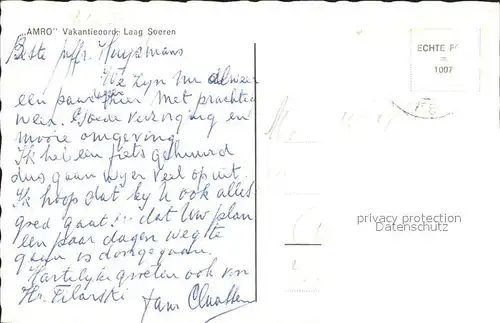 „AMRO" Vakantieoord, Laag Soeren
Beste Mffr. Huysmans
We zyn nu alweer
een paar dagen hier met prachtig
weer. Goede verzorging en
mooie omgeving.
Ik heb een fiets gehuurd
dus gaan wyer veel op uit.
Ik hoop dat by U ook alles
goed gaat. dat Uw plan
een paar dagen weg te
gaan is doorgegaan.
Hartelyke groeten ook van
Hr. Filarski
ECHTE FO
=
1007
privacy protection
Datenschutz